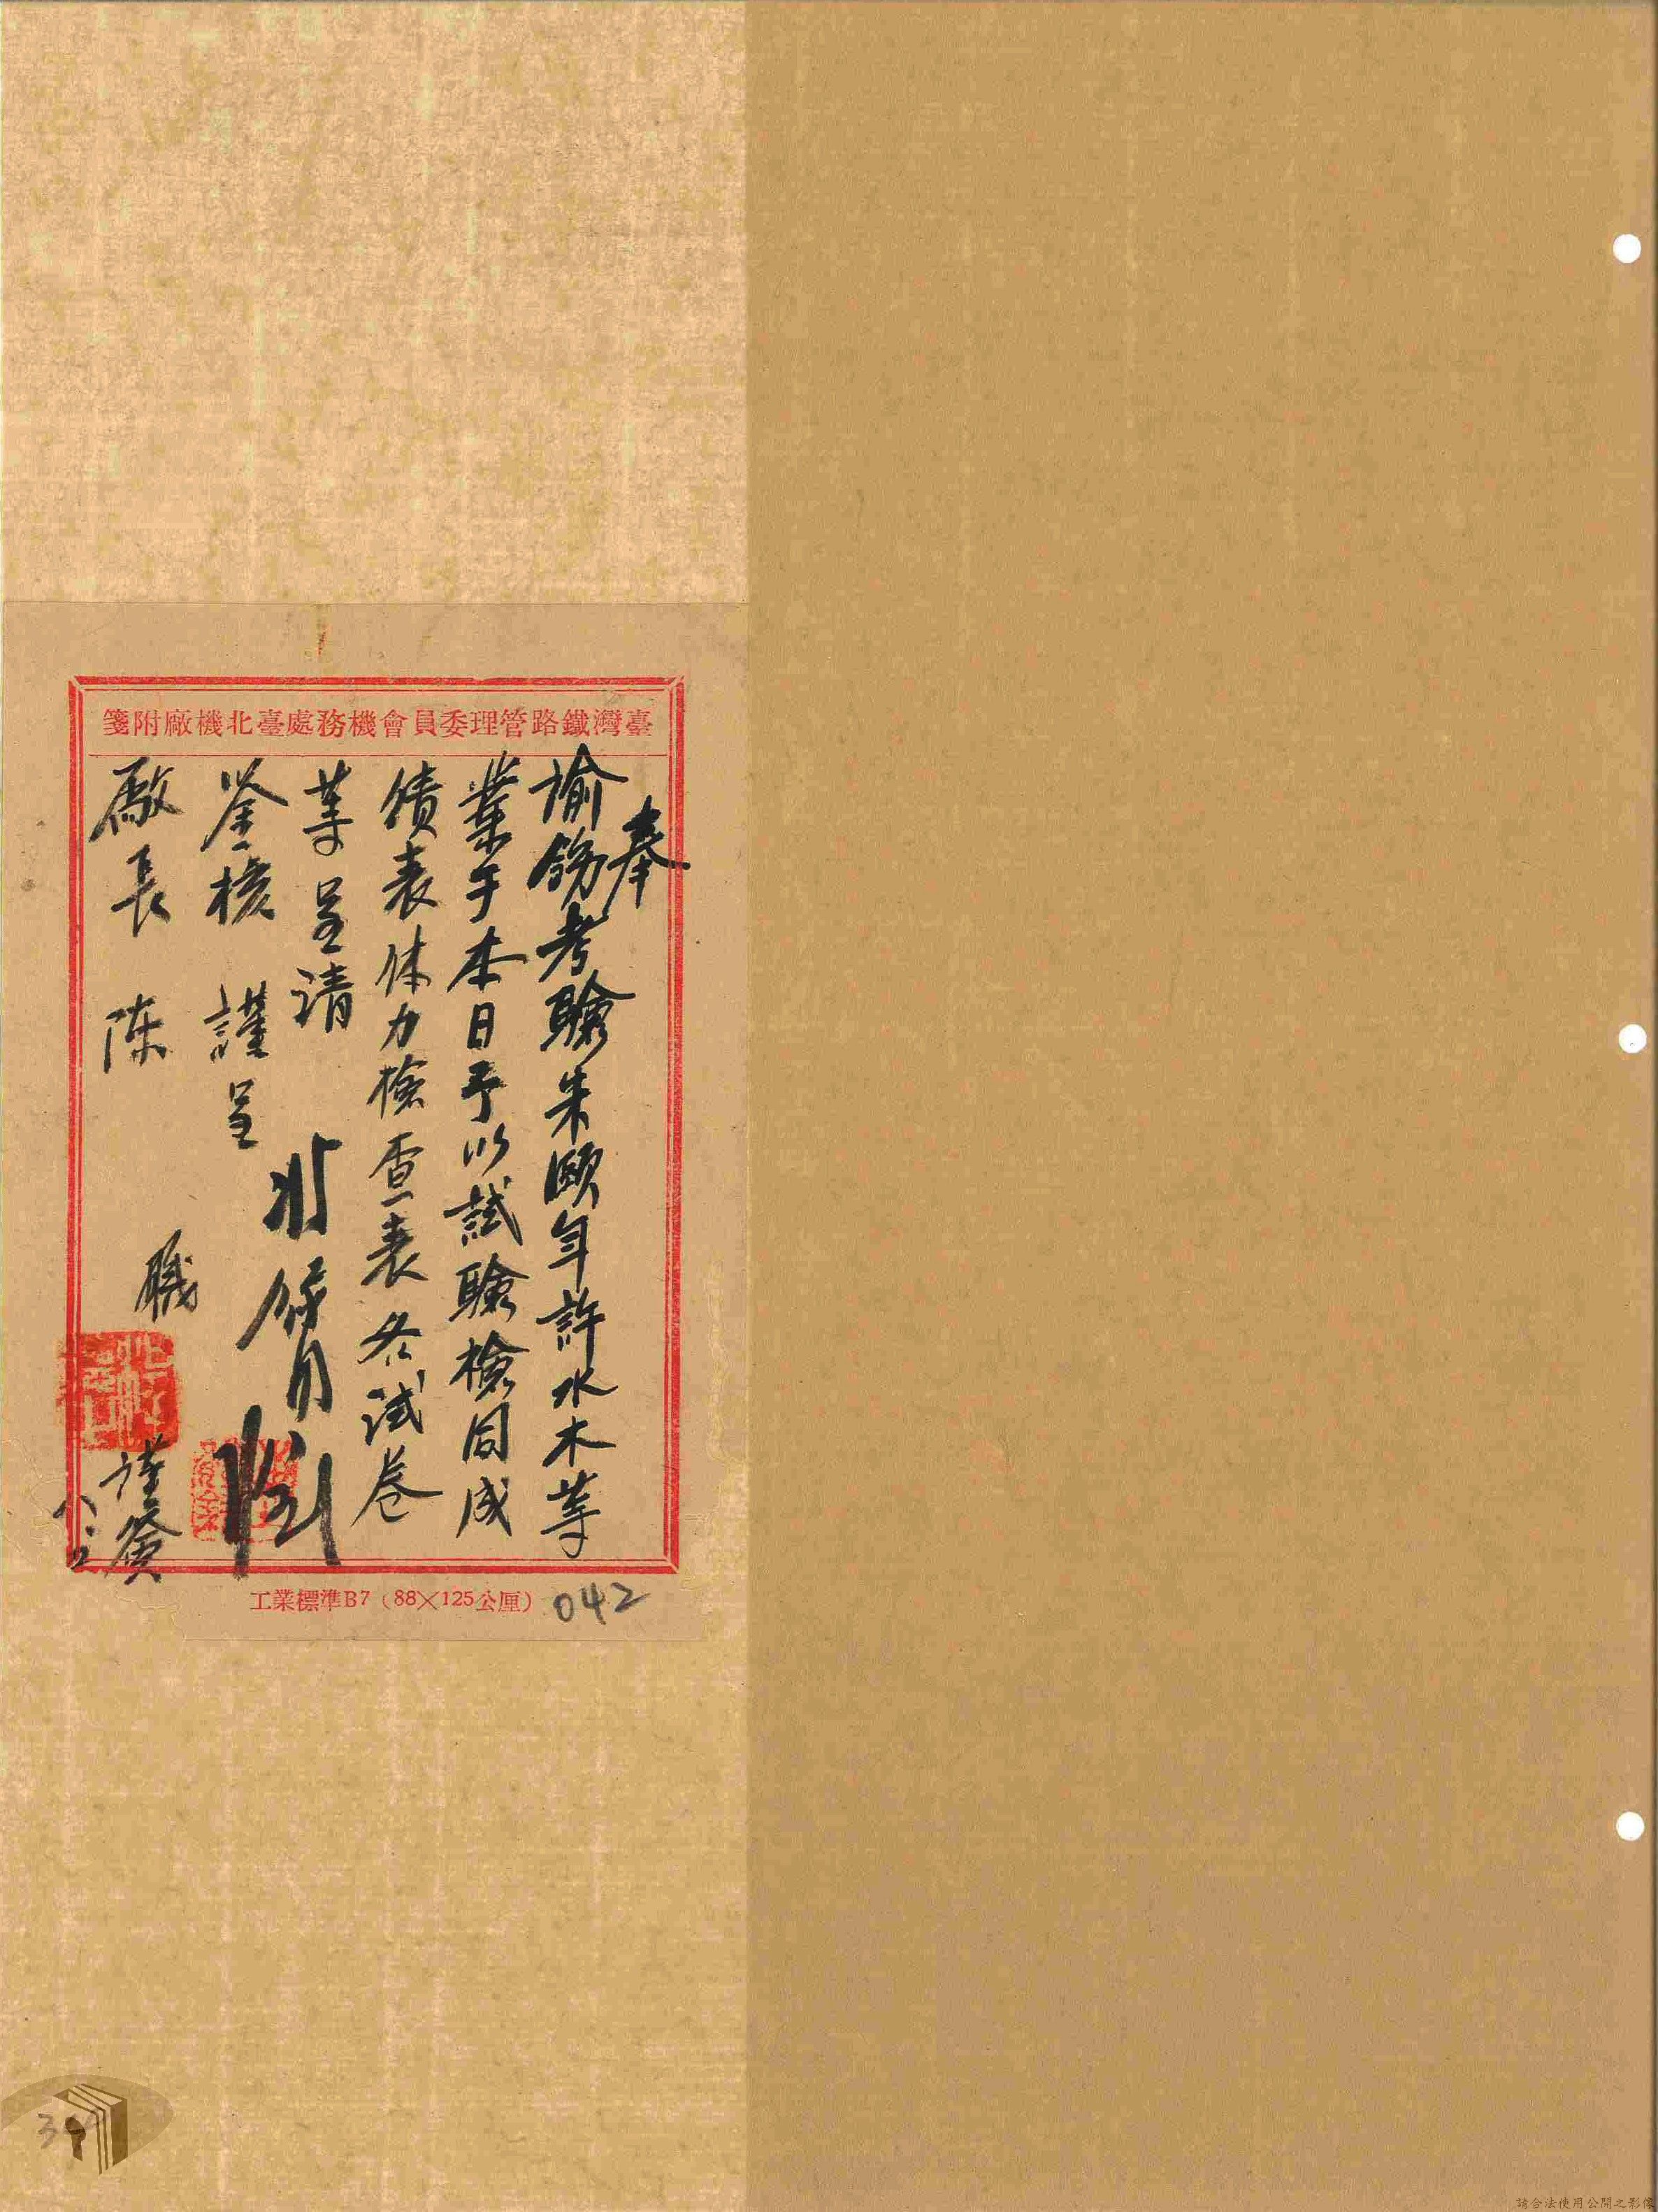 臺灣鐵路管理委員會機務處臺北機廠附箋
奉
諭飭考驗朱頤年許水木等
業于本日予以試驗檢同成
績表体力檢查表各試卷
等呈請
鉴核 謹呈
廠長 陈
職
谨簽
八、二
工業標準B7（88×125公厘）
042
請合法使用公開之影像